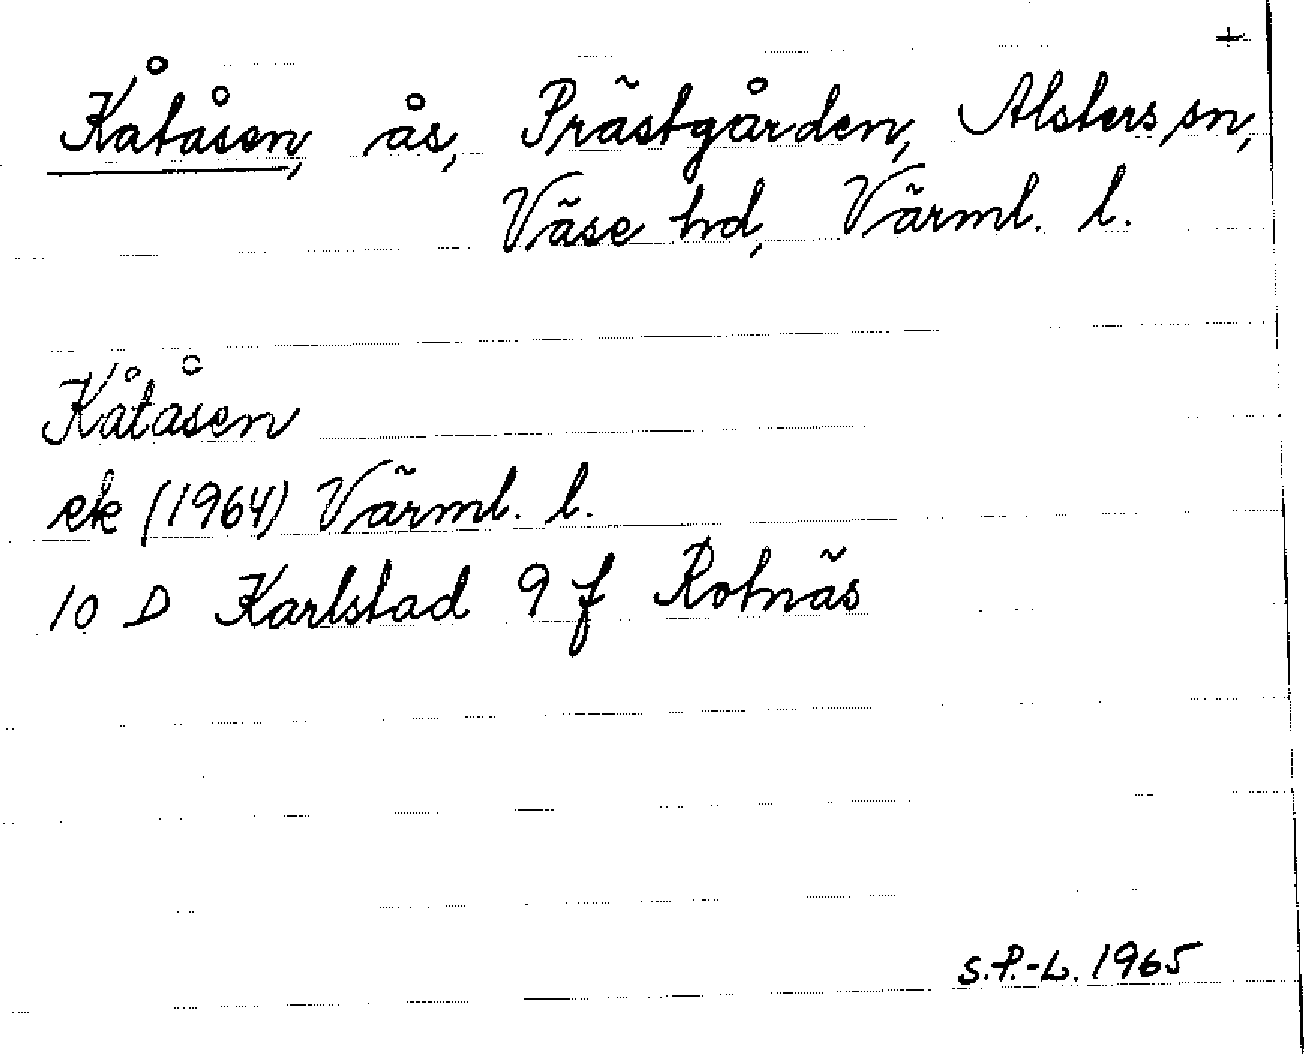 +
Kåtåsen, ås, Prästgården, Alsters sn,
Väse hd, Värml. l.
Kåtåsen
ek (1964) Värml. l.
10 D Karlstad 9 f Rotnäs
S.P.-L. 1965